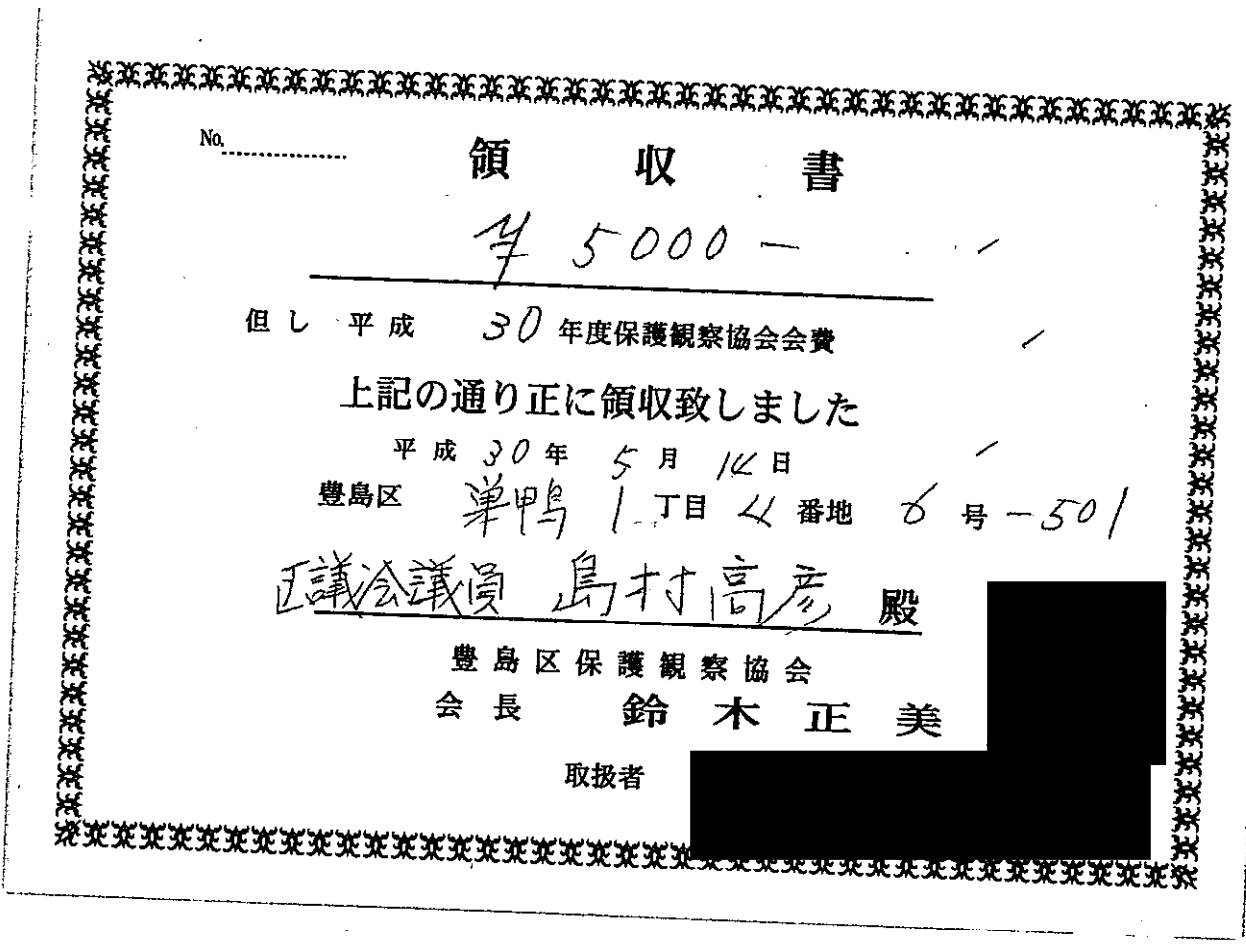 No.
領収書
¥5000-
但し 平成 30 年度保護観察協会会費
上記の通り正に領収致しました
平成 30 年 5 月 14 日
豊島区 巣鴨 1 丁目 4 番地 6 号-501
区議会議員 島村高彦 殿
豊島区保護観察協会
会長 鈴木正美
取扱者